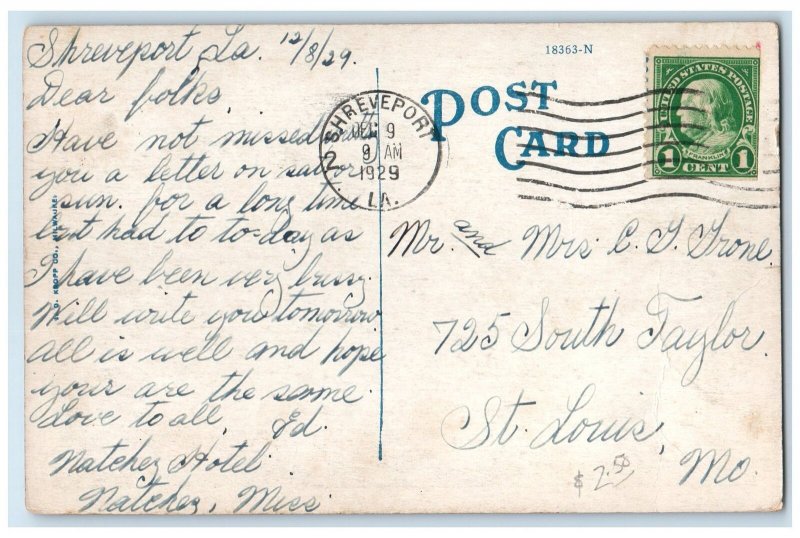 Shreveport La. 12/8/29.
Dear folks,
Have not missed
you a letter on sat or
sun. for a long time
but had to to-day as
I have been very bussy
Will write you tomorrow
all is well and hope
yours are the same.
Love to all, Ed.
Natchez Hotel
Natchez, Miss.
E. C. KROPP CO., MILWAUKEE
18363-N
POST
CARD
SHREVEPORT
2
DEC 9
9 AM
1929
LA.
UNITED STATES POSTAGE
FRANKLIN
1 1
CENT
Mr. and Mrs. C. F. Frone
725 South Taylor.
St. Louis,
Mo.
$2.50